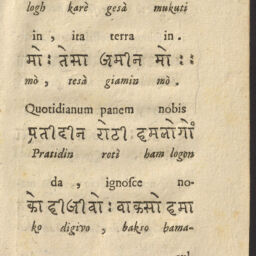 logh karè gesà mukuti
in , ita terra in.
मोः तेमा जमीन मोः :
mò , tesà giamin mò .
Quotidianum panem nobis
प्रतीदीन रोटी हमलोगों
Pratidin rotì ham logon
da , ignosce no-
को दीजीवोः वाकसो हमा
ko digivo , bakso hama-